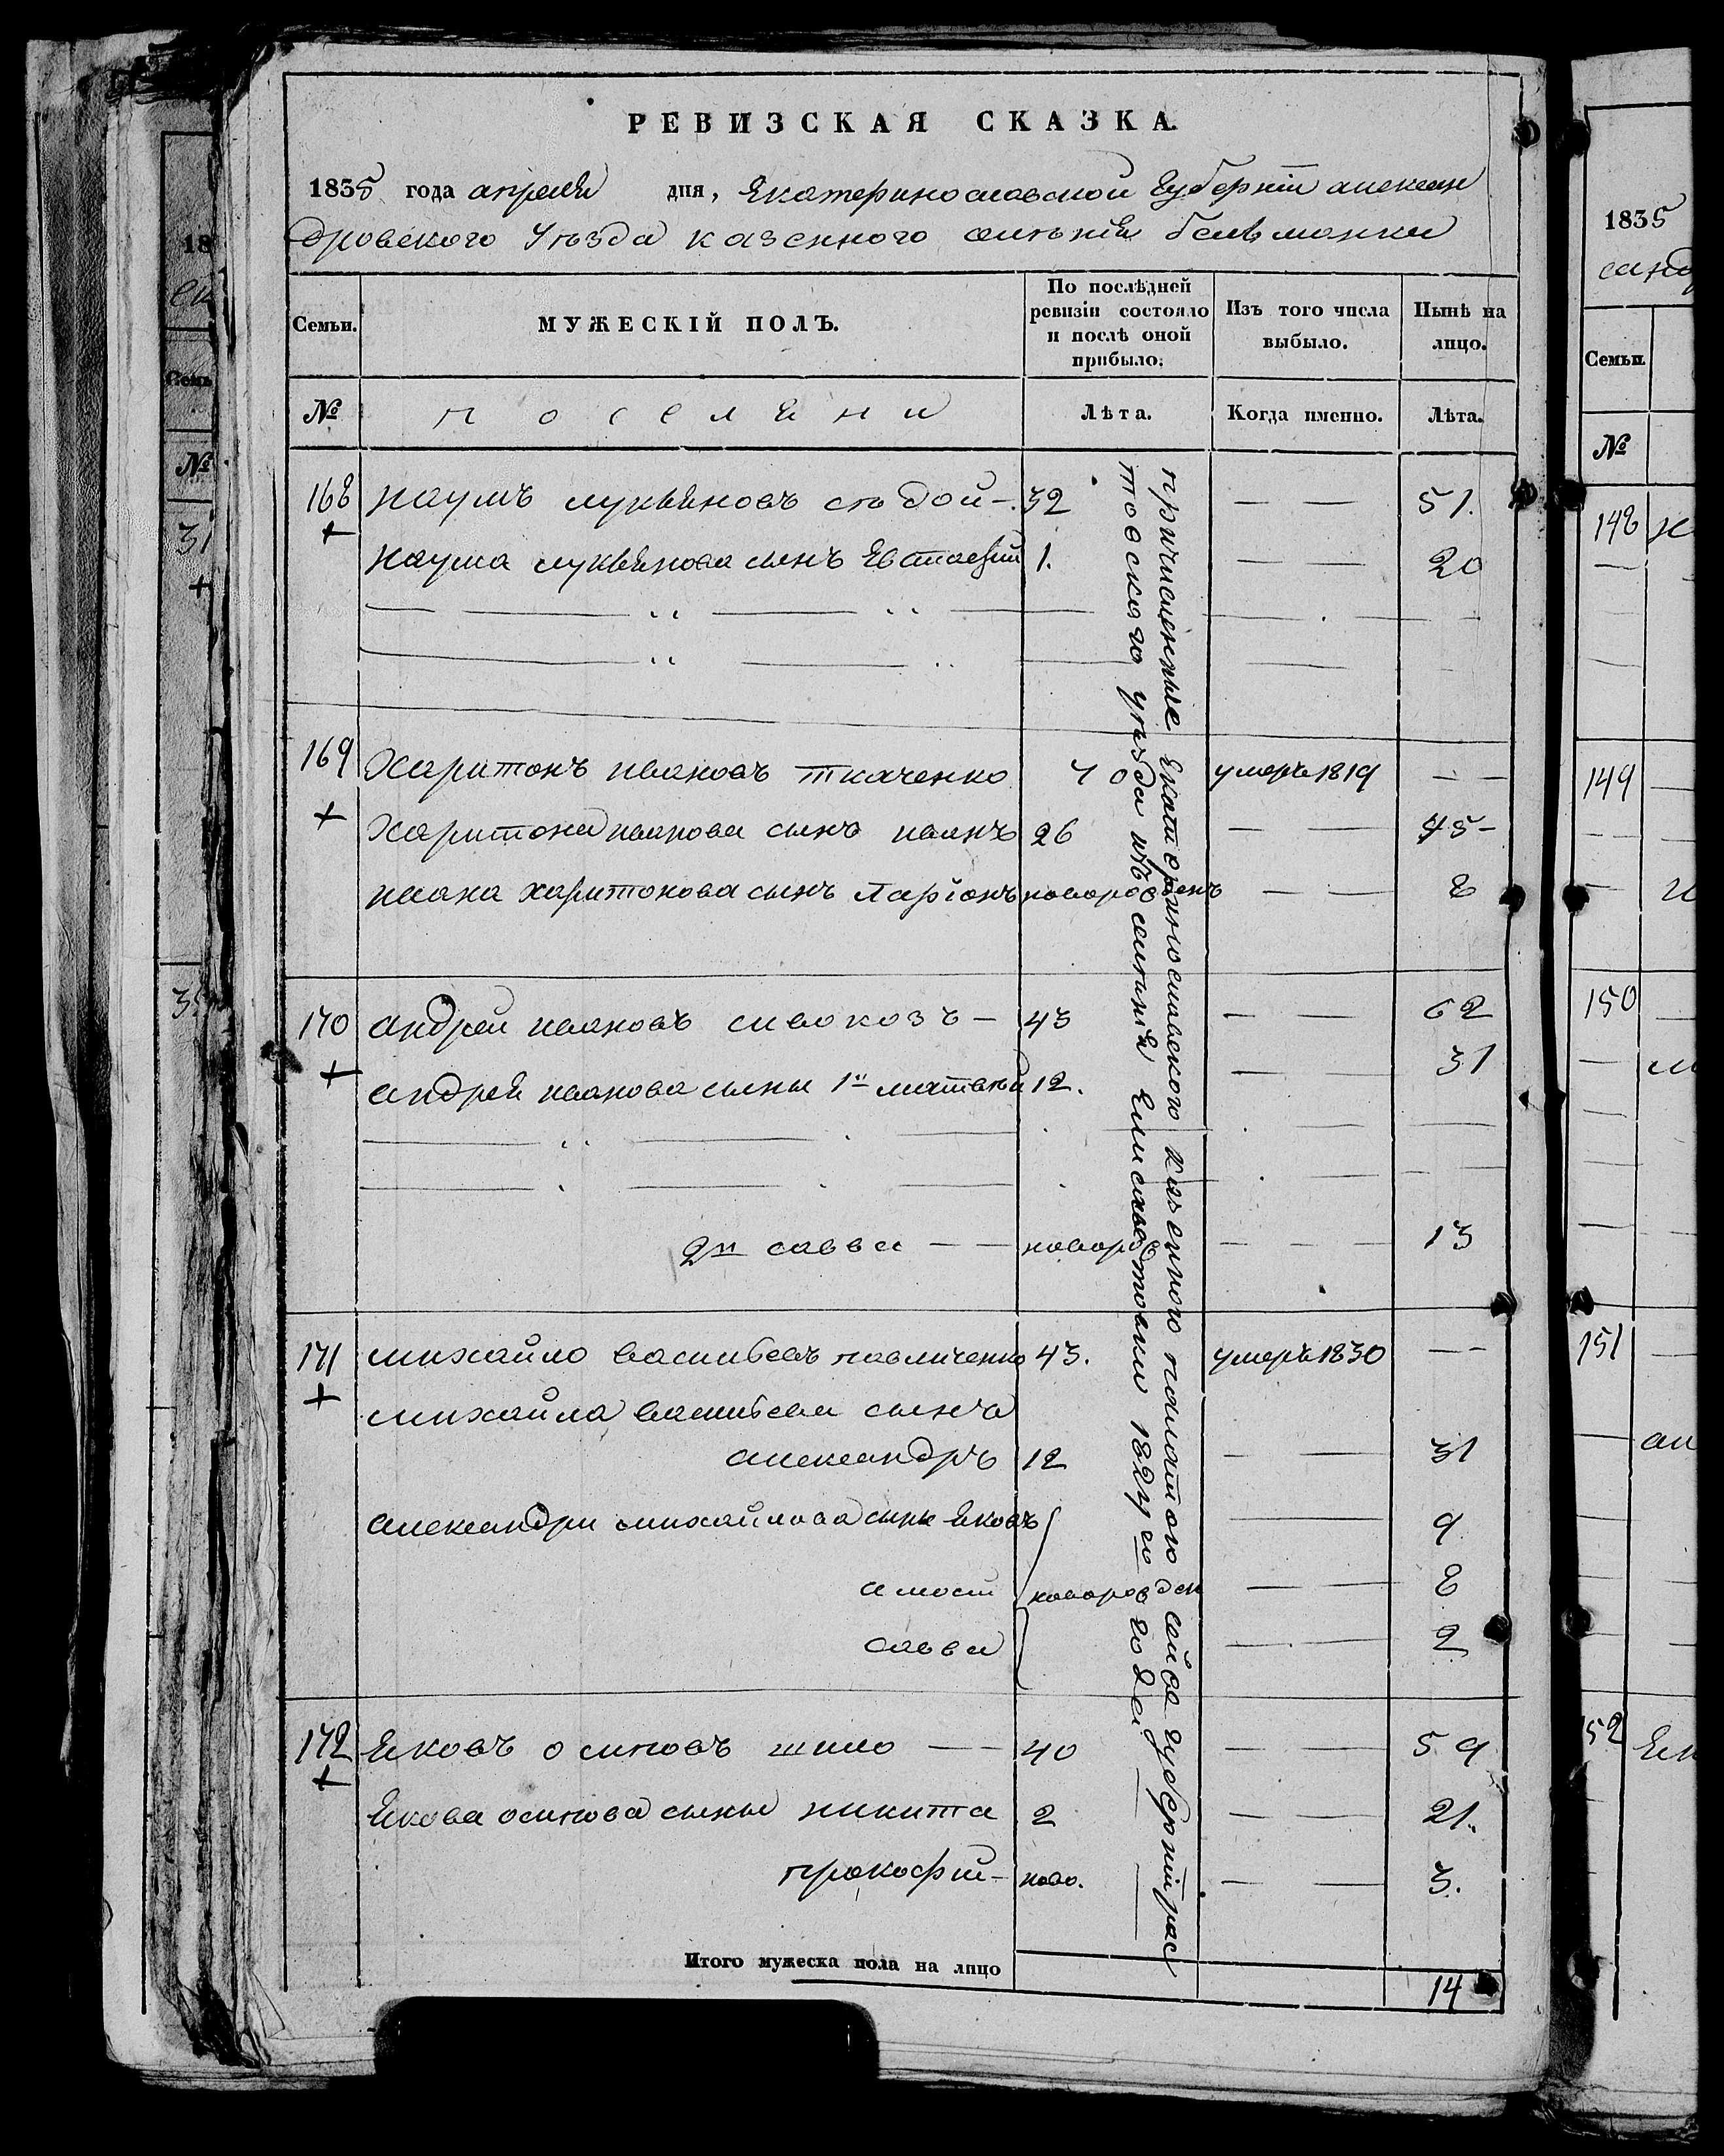 РЕВИЗСКАЯ СКАЗКА.
1835 года апреля дня, Екатеринославской Губернiи алексан
дровского Уѣзда казенного селѣнiя белманки
Семьи.
МУЖЕСКIЙ ПОЛЪ.
По послѣдней ревизiи состояло и послѣ оной прибыло.
Изъ того числа выбыло.
Нынѣ на лицо.
№
поселяни
Лѣта.
Когда именно.
Лѣта.
168 наумъ лукьяновъ сѣдой -. 32 — — 51.
+
наума лукьянова сынъ Евстаефий 1. — — 20
169 Харитонъ ивановъ ткаченко 70 умеръ 1819 — —
+
Харитона иванова сынъ иванъ 26 — — 45 -
ивана харитонова сынъ Ларiонъ новорожденъ — — 8
170 андрей ивановъ сивокозъ — 43 — — 62
+
андрея иванова сыны 1й матвѣй 12. — — 31
2й савва — — новорож — — — 13
171 михайло васильевъ павличенко 43. умеръ 1830 — —
+
михайла васильева сынъ
александръ 12 — — 31
александра михайлова сыны Яковъ — — 9
амосъ новорожден — — 8
савва — — 2
172 Яковъ осиповъ шило — — 40 — — 59
+
Якова осипова сыны никита 2 — — 21.
прокофий - ново. — — 3.
причисленные Екатеринославского казенного палатою сей же губернiи рос
товскаго уѣзда изъ селѣнiя Елисаветовки 1827 го года
Итого мужеска пола на лицо
14
1835
Семьи.
№
148
149
150
151
52
18
Семь
№
31
+